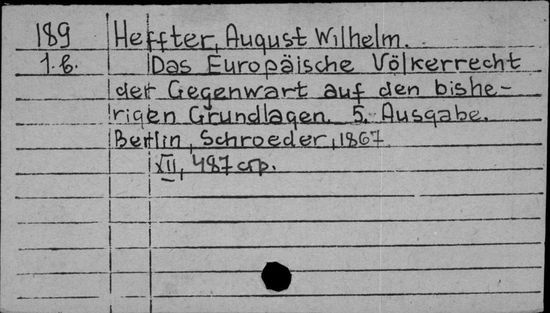 189 Heffter, August Wilhelm.
1.б. Das Europäische Völkerrecht
der Gegenwart auf den bishe-
rigen Grundlagen. 5. Ausgabe.
Berlin, Schroeder, 1867.
XII, 487 стр.